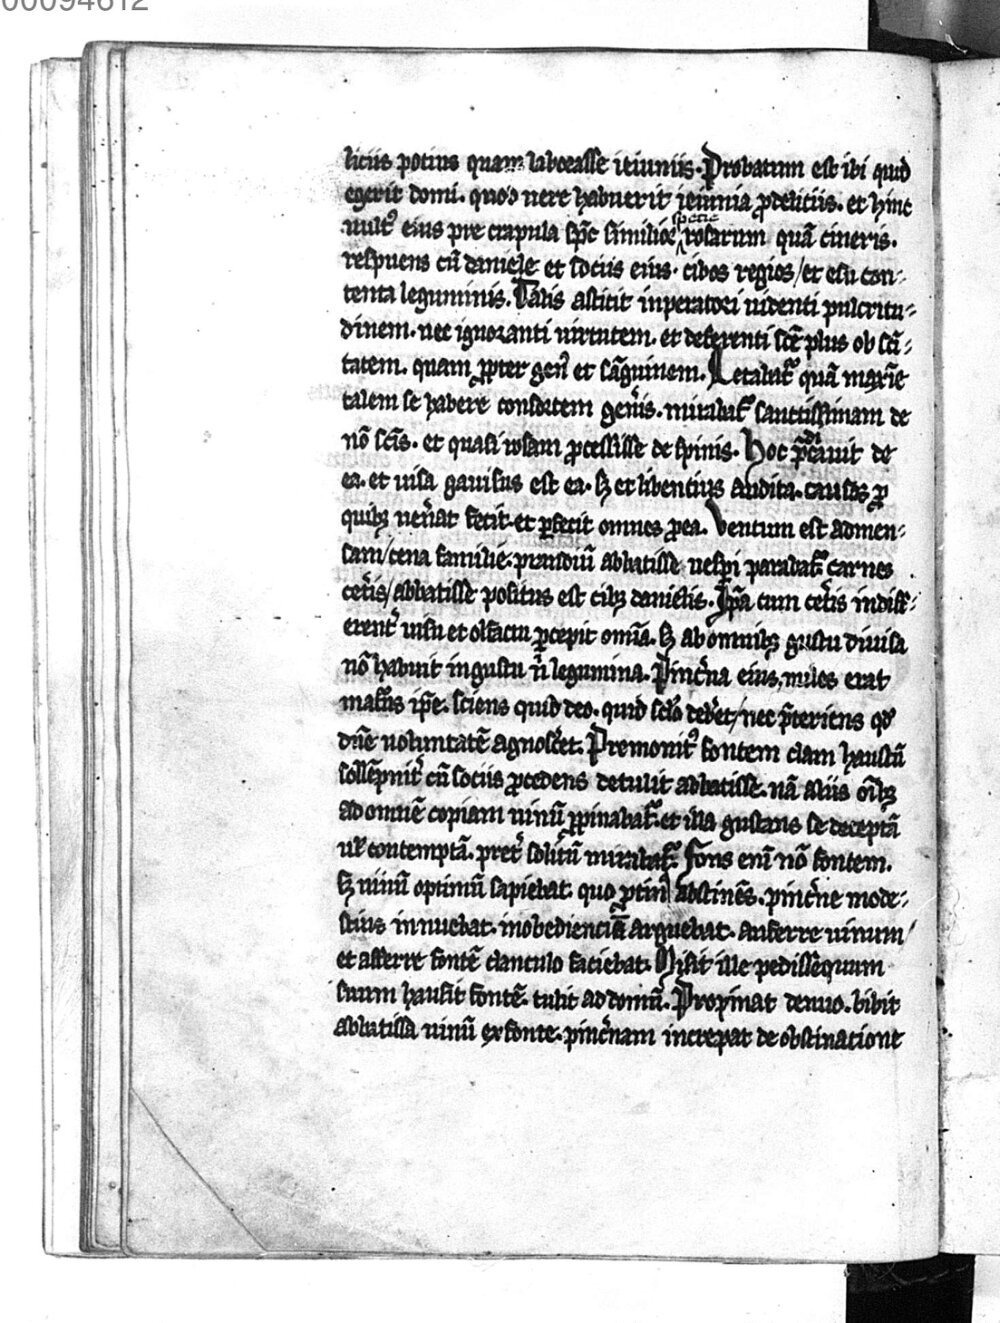 00094612
liciis potius quam laborasse ieiuniis. Probatum est ibi quid
egerit domi. quod vere habuerit ieiunia pro deliciis. et hinc
vult᷒ eius pre crapula sp̄c similior specie rosarum quā cineris.
respuens cū daniele et sociis eius. cibos regios/et esu con-
tenta leguminis. Talis astitit inperatori videnti pulcritu-
dinem. nec ignoranti virtutem. et deferenti sc̄e plus ob sc̄i-
tatem. quam ꝓpter gen᷒ et sāguinem. Letabat᷑ quā maxīe
talem se habere consortem gen̄is. mirabat᷑ sanctissimam de
nō sc̄is. et quasi rosam ꝓcessisse de spinis. Hoc p̄dicavit de
ea. et visa gavisus est ea. sꝫ et libentius audita. causas ꝓ
quibꝫ ven̄at fecit. et ꝑfecit omnes ꝓ ea. Ventum est ad men-
sam/cena familie. prandiū abbatisse vesꝑi parabat᷑ carnes
cet̄is/abbatisse positus est cibꝫ danielis. Ip̄a cum cet̄is indiff-
erent᷑ visu et olfactu ꝑcepit om̄ia. sꝫ ab omnibꝫ gustu divisa
nō habuit in gustu n̄ legumina. Pinc̄na eius, miles erat
ip̄e. sciens quid deo. quid sc̄lo deb̄et/nec p̄teriens qd̄
dn̄e voluntatē agnosc̄et. Premonit᷒ fontem clam haustū
sollēpnit᷑ cū sociis ꝓcedens detulit abbatisse. nā aliis oībꝫ
ad omnē copiam vinū ꝓpinabat᷑. et illa gustans se deceptā
vl̄ contemptā. pret᷑ solitū mirabat᷑. Fons eni nō fontem.
sꝫ vinū optimū sapiebat. quo ꝓtin᷒ abstinēs. pinc̄ne mode-
stius innuebat. inobedienciā arguebat. auferre vinum/
et afferre fontē clanculo faciebat. Misit ille pedissequum
suum hausit fontē. tulit ad domū. Propinat denuo. bibit
abbatissa vinū ex fonte. pinc̄nam increpat de obstinatione